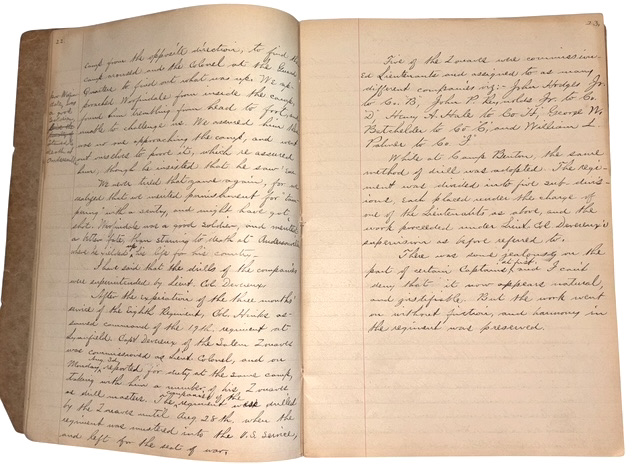 22
camp from the opposite direction, to find the
camp aroused and the Colonel at the Guard
Quarters to find out what was up. We ap-
proached Worfindale from inside the camp,
found him trembling from head to foot, and
unable to challenge us. We assured him there
was no one approaching the camp, and went
out ourselves to prove it, which re assured
him, though he insisted that he saw
We never tried that game again, for we
realized that we merited punishment for tam-
pering with a sentry, and might have got
shot. Worfindale was a good soldier, and merited
a better fate, than starving to death at Andersonville
where he yielded up his life for his country.
I have said that the drills of the companies
were superintended by Lieut. Col Devereux
After the expiration of the three months'
service of the Eighth Regiment, Col. Hinks as-
sumed command of the 19th regiment at
Lynnfield. Capt Devereux of the Salem Zouaves
was commissioned as Lieut Colonel, and on
Monday, Aug. 3d reported for duty at the same camp,
taking with him a number of his Zouaves
as drill masters. The companies of the regiment drilled
by the Zouaves until Aug 28th when the
regiment was mustered into the U.S. Service,
and left for the seat of war.
23
Five of the Zouaves were commission-
ed Lieutenants and assigned to as many
different companies viz:- John Hodges Jr.
to Co. B, John P Reynolds Jr. to Co.
D, Henry A. Hale to Co H, George W.
Batchelder to Co C, and William L
Palmer to Co F
While at Camp Benton, the same
method of drill was adopted. The Regi-
ment was divided into five sub divis-
ions, each placed under the charge of
one of the Lieutenants as above, and the
work proceeded under Lieut Col Devereux's
supervision as before referred to.
There was some jealousy on the
part of certain Captains, at first, and I cant
deny that it now appears natural,
and justifiable. But the work went
on without friction, and harmony in
the regiment was preserved.